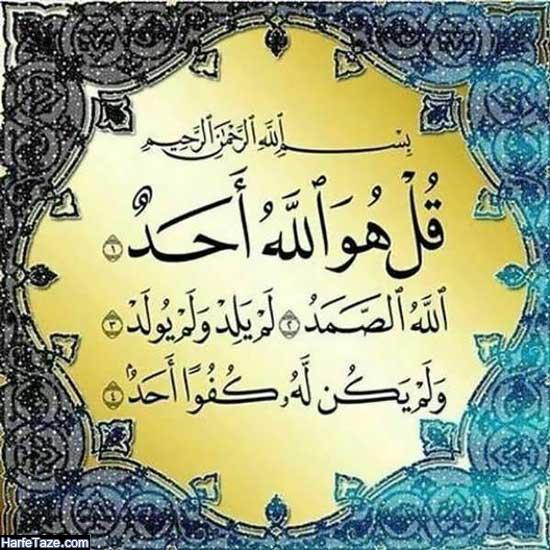 بِسْمِ ٱللَّهِ ٱلرَّحْمَٰنِ ٱلرَّحِيمِ
قُلْ هُوَ ٱللَّهُ أَحَدٌ ١
ٱللَّهُ ٱلصَّمَدُ ٢ لَمْ يَلِدْ وَلَمْ يُولَدْ ٣
وَلَمْ يَكُن لَّهُۥ كُفُوًا أَحَدٌۢ ٤
HarfeTaze.com